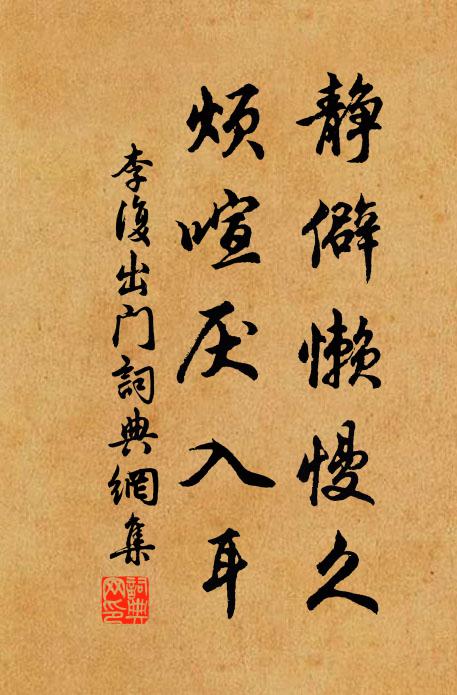 静僻懒慢久
烦喧厌入耳
李復出门詞典網集
詞典網印